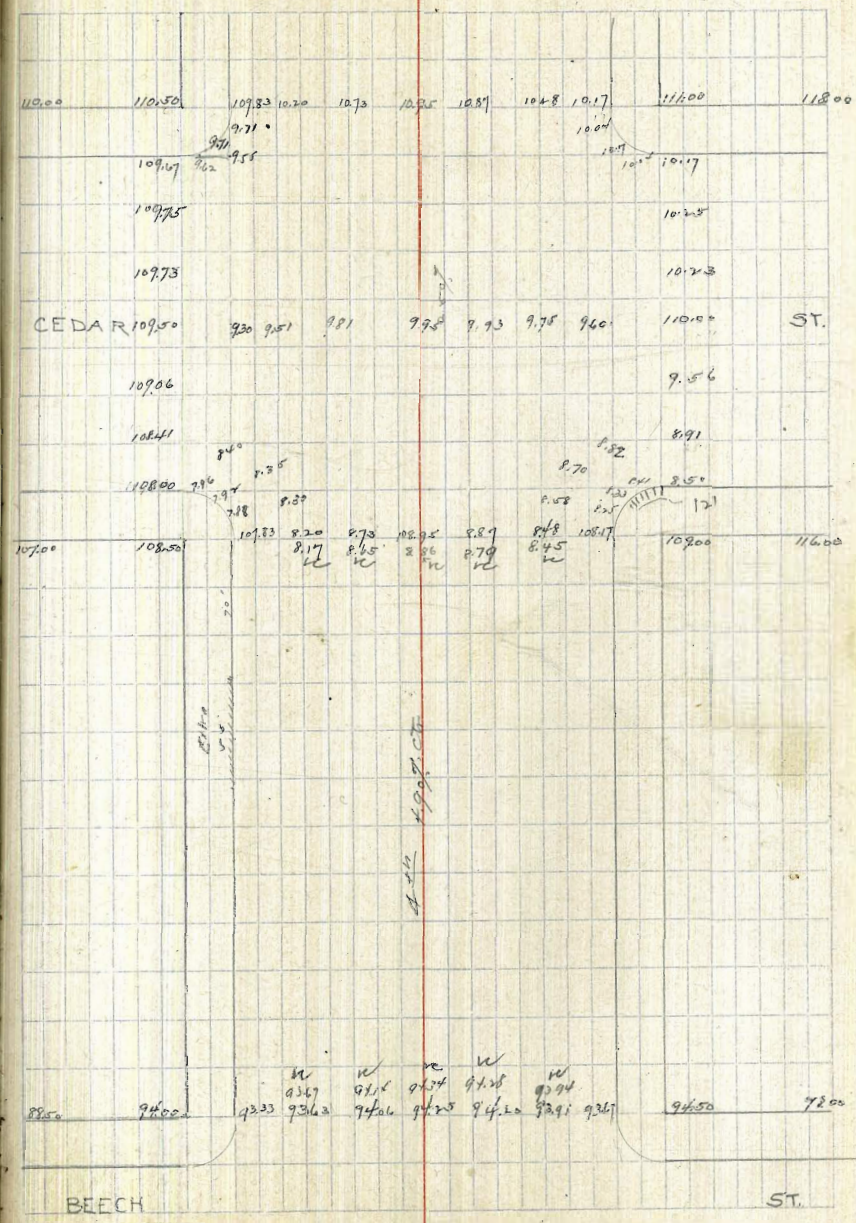 110.00 110.50 109.83 10.20 10.73 10.95 10.87 10.48 10.17 111.00 118.00
9.71 10.04
9.71
109.67 9.62 9.55 10.17
109.75 10.25
109.73 10.23
CEDAR 109.50 9.30 9.51 9.81 9.95 9.93 9.75 9.60 110.00 ST.
109.06 9.56
108.41 8.91
8.40 8.82
8.35 8.70
108.00 7.96 8.41 8.50
7.88 8.30 8.58 8.25 12'
107.00 108.50 107.83 8.20 8.73 108.95 8.87 8.48 108.17 109.00 116.00
8.17 8.65 8.86 8.79 8.45
vc vc vc vc vc
20'
4th 4.90% Ctr
vc vc vc vc vc
93.67 94.14 94.34 94.28 93.94
88.50 94.00 93.33 93.63 94.06 94.25 94.20 93.91 93.67 94.50 98.00
BEECH ST.